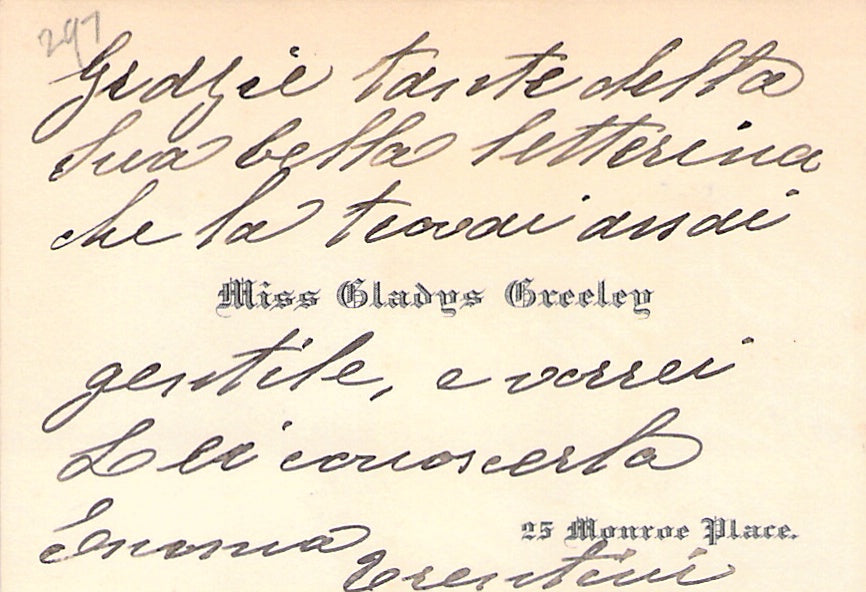 297
Grazie tante della
Sua bella letterina
che la trovai assai
Miss Gladys Greeley
gentile, e vorrei
Lei conoscerla
25 Monroe Place.
Emma
Trentini